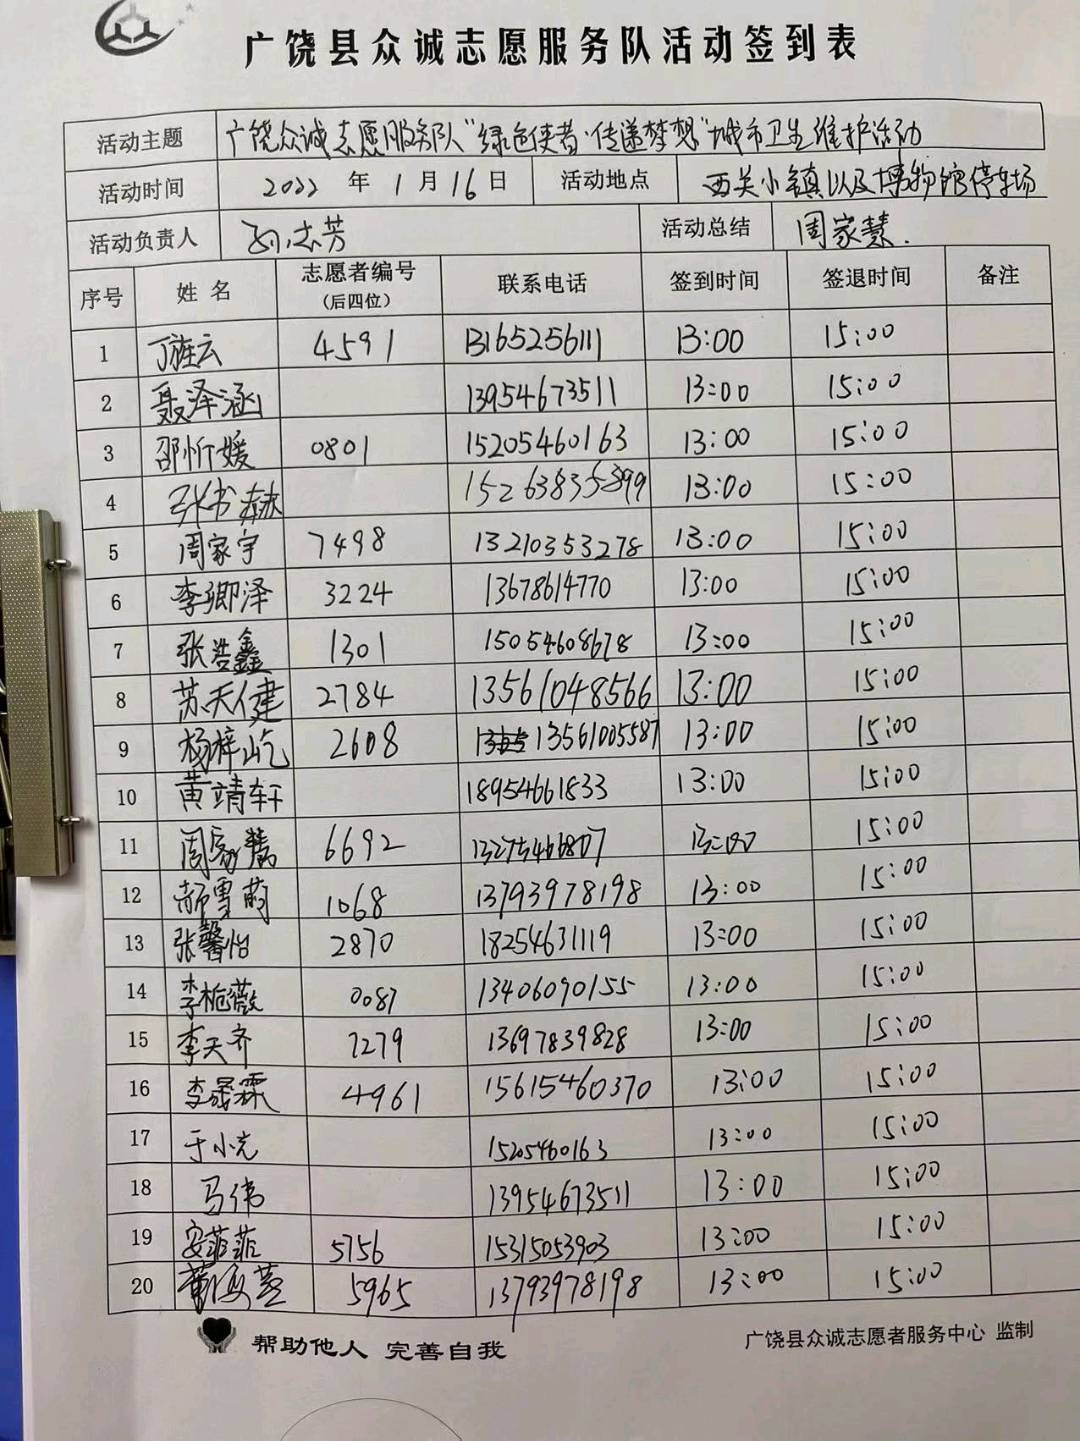 广饶县众诚志愿服务队活动签到表
活动主题 广饶众诚志愿服务队“绿色使者·传递梦想”城市卫生维护活动
活动时间 2022 年 1 月 16 日 活动地点 西关小镇以及博物馆停车场
活动负责人 芳 活动总结 周家慧.
序号 姓 名 志愿者编号 (后四位) 联系电话 签到时间 签退时间 备注
1 丁云 4591 13165256111 13:00 15:00
2 聂泽涵 13954673511 13:00 15:00
3 邵忻媛 0801 15205460163 13:00 15:00
4 张书赫 15263835899 13:00 15:00
5 周家宇 7498 13210353278 13:00 15:00
6 李卿泽 3224 13678614770 13:00 15:00
7 张浩鑫 1301 15054608678 13:00 15:00
8 苏天健 2784 13561048566 13:00 15:00
9 杨梓屹 2608 13561005587 13:00 15:00
10 黄靖轩 18954661833 13:00 15:00
11 周家慧 6692 13:00 15:00
12 郝雪萌 1068 13793978198 13:00 15:00
13 张馨怡 2870 18254631119 13:00 15:00
14 李栀薇 0087 13406090155 13:00 15:00
15 李天齐 7279 13697839828 13:00 15:00
16 李晟霖 4961 15615460370 13:00 15:00
17 于小 15205460163 13:00 15:00
18 马伟 13954673511 13:00 15:00
19 安菲菲 5756 15315053903 13:00 15:00
20 5965 13793978198 13:00 15:00
帮助他人 完善自我
广饶县众诚志愿者服务中心 监制